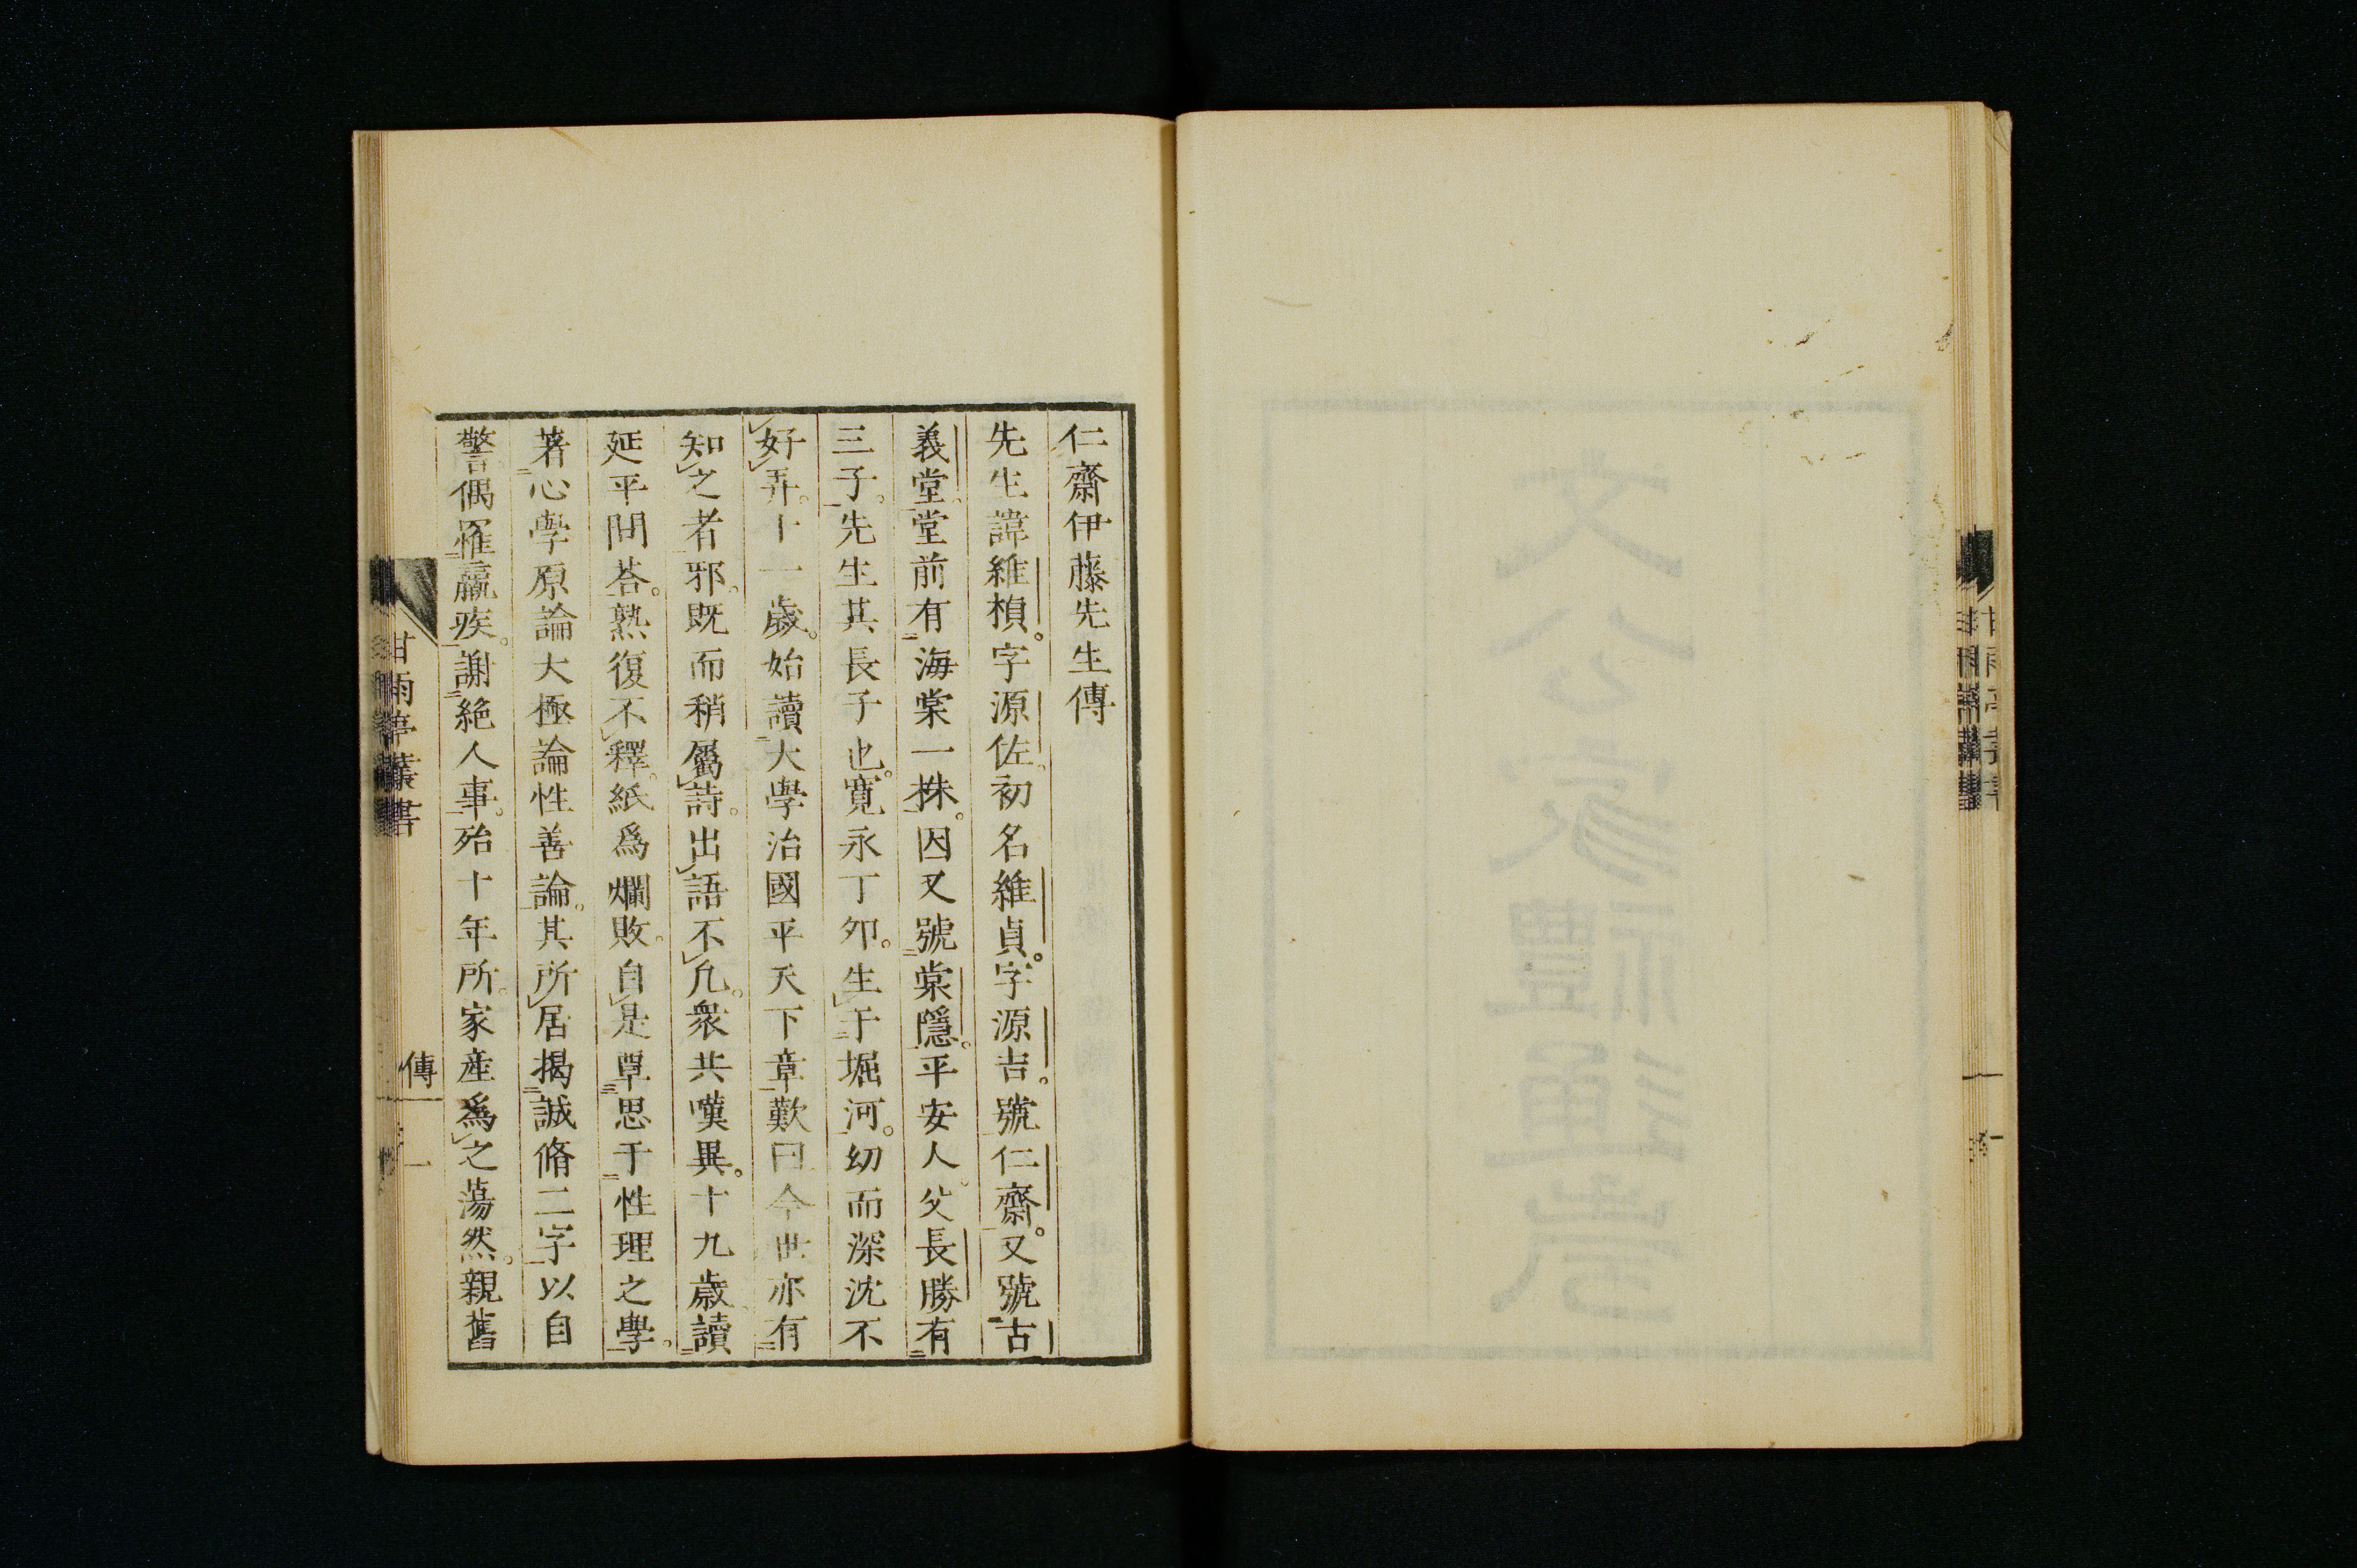 仁齋伊藤先生傳
先生諱維楨。字源佐。初名維貞。字源吉。號仁齋。又號古
義堂。堂前有海棠一株。因又號棠隱。平安人。父長勝有
三子。先生其長子也。寬永丁卯。生于堀河。幼而深沈不
好弄。十一歲。始讀大學治國平天下章歎曰今世亦有
知之者邪。既而稍屬詩。出語不凡。衆共嘆異。十九歲讀
延平問荅。熟復不釋。紙爲爛敗。自是覃思于性理之學。
著心學原論大極論性善論。其所居揭誠脩二字以自
警偶罹羸疾。謝絕人事。殆十年所。家產爲之蕩然。親舊
甘雨亭叢書
傳
一